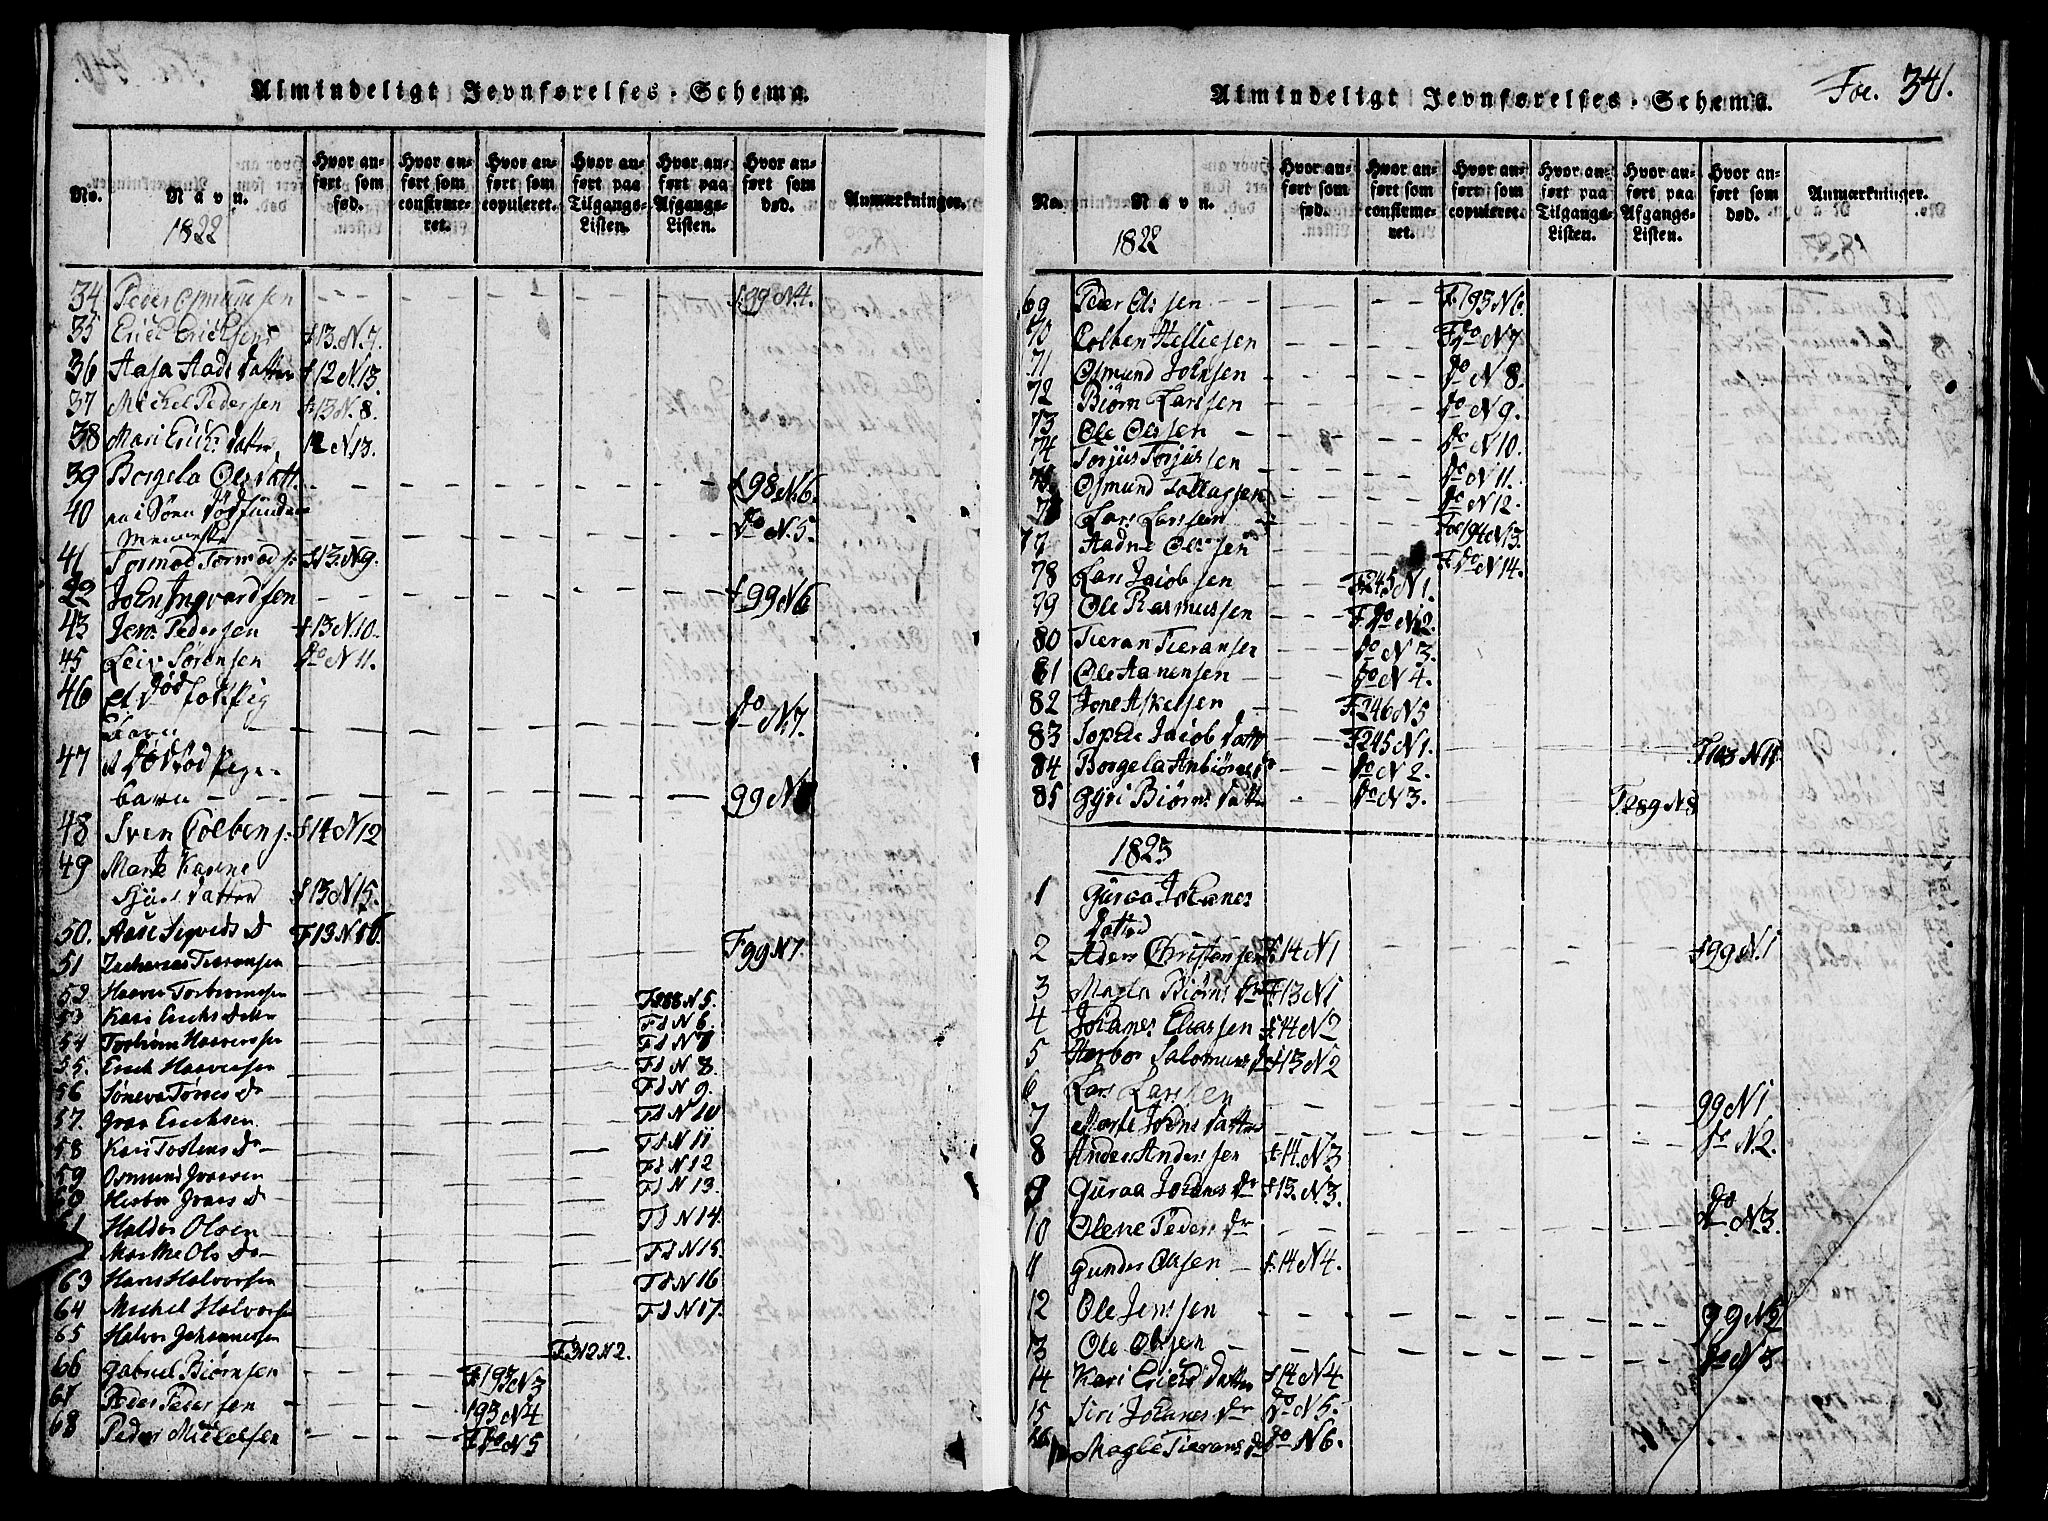 Almindeligt Jevnførelses-Schema.
No.
Navn.
Hvor anført som fød.
Hvor anført som confirmeret.
Hvor anført som copuleret.
Hvor anført paa Tilgangs-Listen.
Hvor anført paa Afgangs-Listen.
Hvor anført som død.
Anmærkninger.
1822
34 Peder Osmunsen f. 39 N4.
35 Erik Ericksen f13. N. 7.
36 Aasa Aads datter f12 N. 13.
37 Mickel Pedersen f13 N. 8.
38 Mari Ericks datter 12 N13.
39 Borgela Ols datt. f 98 N. 6.
40 død funden
Menneske do N. 5.
41 Tormod Tormods: f13. N9.
22 John Ingvardsen f 99 N6
43 Jens Pedersen f13 N. 10.
45 Leiv Sørensen do N 11.
46 et død
Barn do N. 7.
47 et død
barn 99 N
48 Sven Colbens: f14 N12
49 Marte Karine
datter f13 N15.
50. Aase Sigvids D F13 N16. F99 N7.
51 Zacharias Tieransen
52 Haaver Torbiørnsen F288 N 5.
53 Kari Erichs Dtr F d N 6.
54 Torbiørn Haaversen F d N 7
55. Erich Haaversen F d N 8.
56 Søneva Tørres Dr F d N 9.
57 Gros Erichsen F d N 10
58 Kari Tostens Dr F d N 11
59 Osmund Graasen F d N 12
60 Herbor Graas D F d N 13.
61 Haldor Olsen F d N 14.
62 Marthe Ols Dr F d N 15.
63 Hans Halvorsen F d N 16
64 Michel Halvorsen F d N 17.
65 Halvor Johannessen F 212 N 2.
66 Gabriel Biørnsen F193 N3
67 Peder Pedersen 193 N4
68 Peder Mickelsen F do N5
Almindeligt Jevnførelses-Schema.
Foe. 341.
No.
Navn.
Hvor anført som fød.
Hvor anført som confirmenet.
Hvor anført som copuleret.
Hvor anført paa Tilgangs-Listen.
Hvor anført paa Afgangs-Listen.
Hvor anført som død.
Anmærkninger.
1822
69 Peder Olssen F. 193 N6.
70 Colben Hellesen F do N7
71 Osmund Johnsen do N 8.
72 Biørn Larssen do N9.
73 Ole Olssen do N10.
74 Torjus Torjussen do N 11.
75 Osmund Tollagsen do N12.
7 Lars Larssen Foe 194 N13.
77 Aadne Olssen F do N14.
78 Lars Jacobsen F. 245 N 1.
79 Ole Rasmussen F do N 2.
80 Tieran Tieransen do N 3.
81 Ole Aanensen do N 4.
82 Jone Askelsen F. 246 N5
83 Sophie Jacob datt F245 N1. F 103 N 11.
84 Borgela Anbiørns do N 2.
85 Gyri Biørns datt do N3. F. 289 N8
1823
1 Guraa Johanes
datter f99 N. 1
2 Aders Christensen f. 14 N1
3 Magla Biørns Dr f13 N1
4 Johanes Eliassen f. 14 N 2
5 Herbor Salomuns Dr f13 N2
6 Lars Larssen 99 N1
7 Marte Johns datter do N2.
8 Anders Anderssen f. 14. N 3
9 Guraa Johanes Dr f13. N. 3.
10 Olene Peders Dr do N. 3.
11 Gunder Olssen f. 14 N4.
12 Ole Jenssen 99 N 2
13 Ole Olssen do N 3
14 Kari Ericks datter f 14 N4
15 Siri Johanes Dr do N 5.
16 Magle Tierans D do N6.